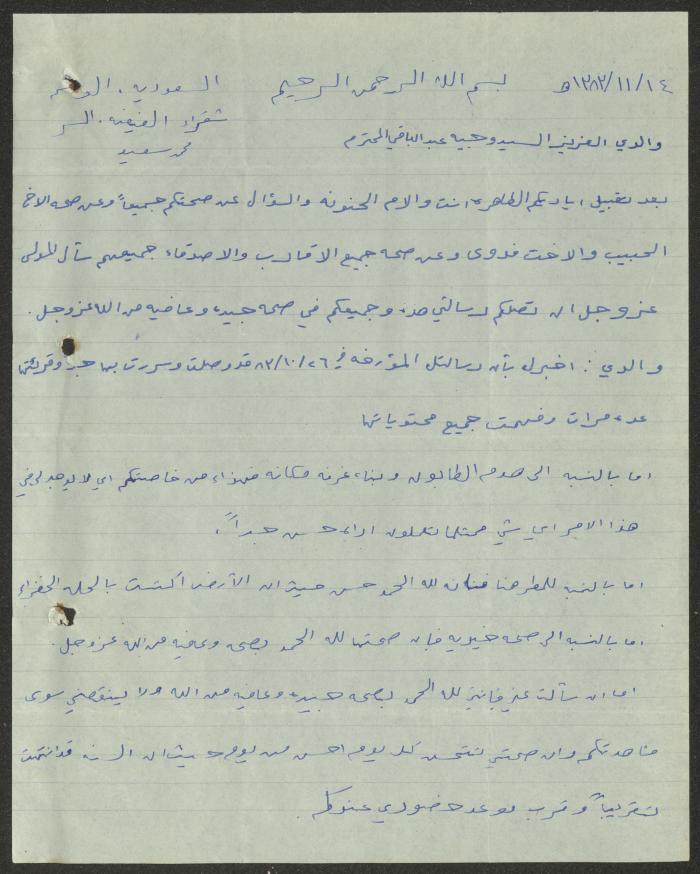 ١٣٨٣/١١/١٤هـ بسم الله الرحمن الرحيم السعودية. الوشم
شقراء الفيضه. السر
محمد سعيد
والدي العزيز السيد وجيه عبد الباقي المحترم
بعد تقبيل اياديكم الطاهره انت والام الحنونه والسؤال عن صحتكم جميعاً وعن صحه الاخ
الحبيب والاخت فدوى وعن صحه جميع الاقارب والاصدقاء جميعهم سأل المولى
عز وجل ان تصلكم رسالتي هذه وجميعكم في صحه جيده وعافيه من الله عز وجل.
والدي: اخبرك بأن رسالتك المؤرخه في ٨٣/١٠/٢٦ قد وصلت وسررت بها جداً وقرئتها
عده مرات وفهمت جميع محتوياتها
اما بالنسبه الى هدم الطابون وبناء غرفه مكانه فهذا من خاصتكم اي لا يوجد لي في
هذا الامر اي شي فمثلما تعملون اراه حسن جداً.
اما بالنسبه للمطر هنا فانه لله الحمد حسن حيث ان الأرض اكتست بالحله الخضراء
اما بالنسبه الى صحه خيريه فان صحتها لله الحمد بصحه وعافيه من الله عز وجل.
اما ان سألت عني فانني لله الحمد بصحه جيده وعافيه من الله ولا ينقصني سوى
مشاهدتكم وان صحتي تتحسن كل يوم احسن من يوم حيث ان السنه قد انتهت
تقريباً وقرب موعد حضوري عندكم.